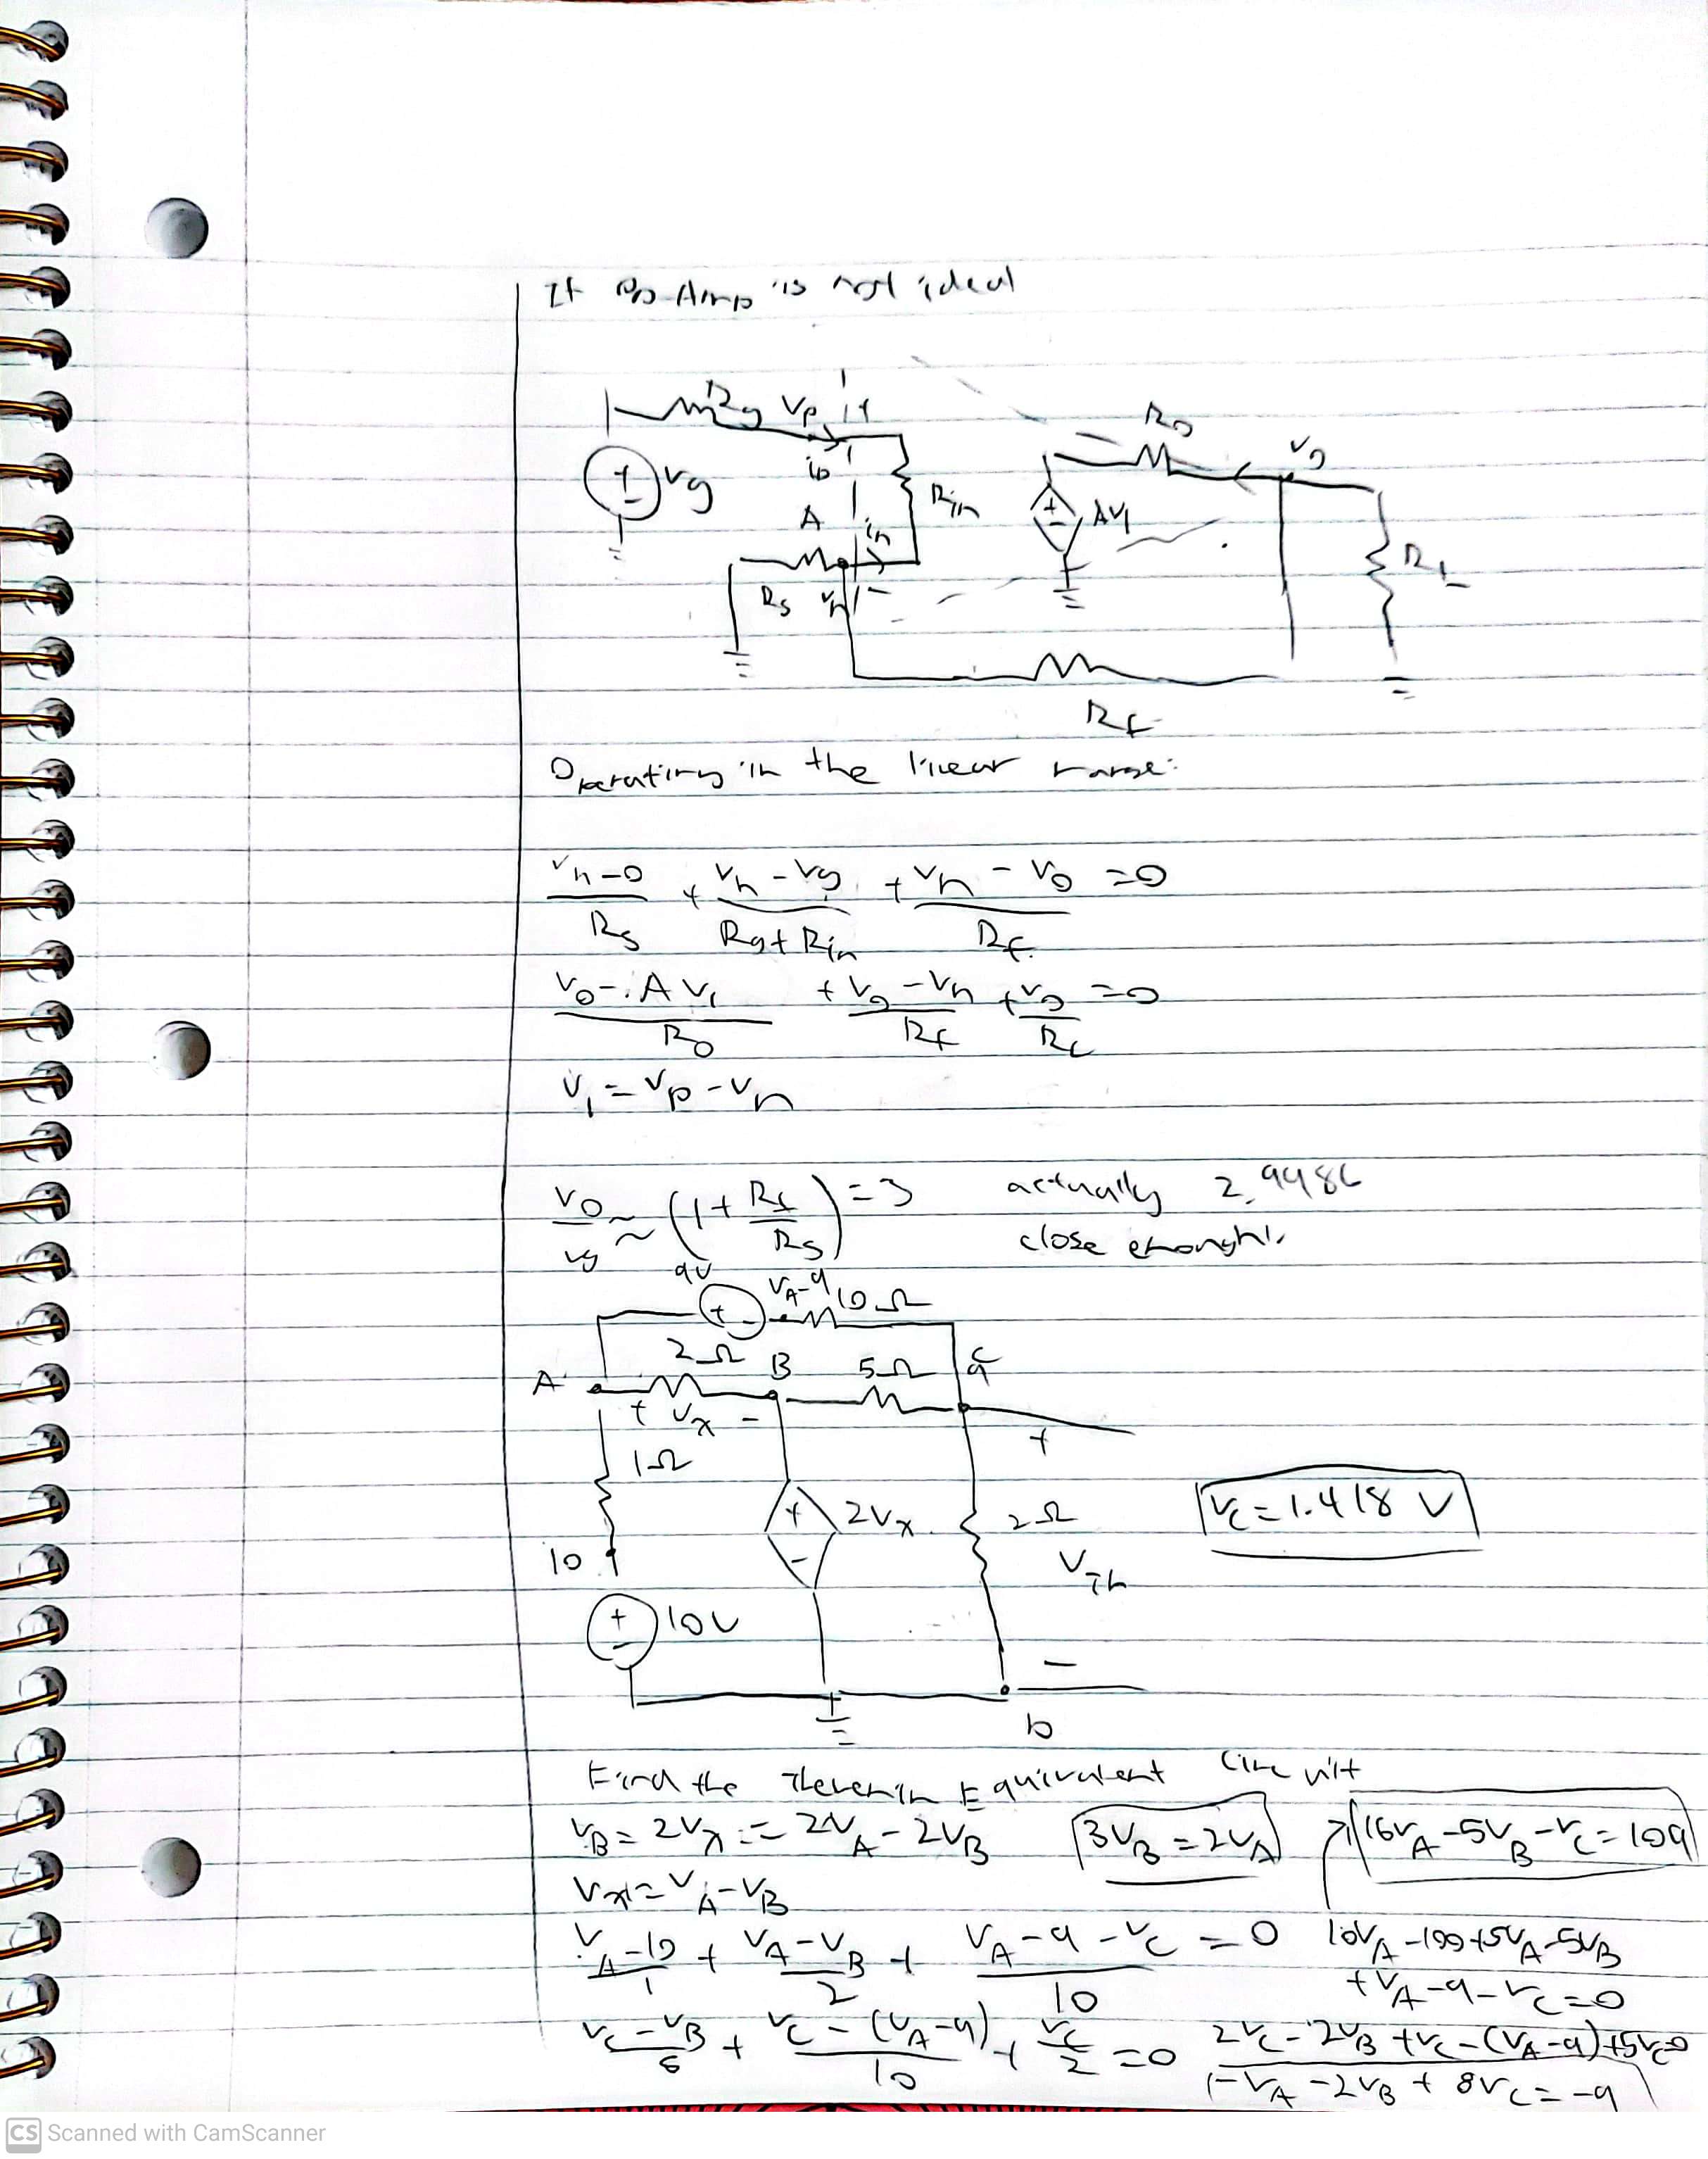 If Op-Amp is not ideal
Rg Vp + Ro Vo
ip
+ - Vg Rin + - AV1
A in RL
Rs Vn -
Rf
Operating in the linear range:
Vn-0/Rs + Vn-Vg/Rg+Rin + Vn-Vo/Rf =0
Vo-AV1/Ro + Vo-Vn/Rf + Vo/RL =0
V1 = Vp-Vn
Vo/Vg ≈ (1+Rf/Rs) =3 actually 2.9986
close enough!
9V VA-9 10Ω
+ -
2Ω B 5Ω C
A a
+ Vx - +
1Ω
+ - 2Vx 2Ω Vc=1.418 V
10 VTh
+ - 10V
-
b
Find the Thevenin Equivalent Circuit
VB=2Vx=2VA-2VB 3VB=2VA 16VA-5VB-VC=109
Vx=VA-VB
VA-10/1 + VA-VB/2 + VA-9-VC/10 =0 10VA-100+5VA-5VB
+VA-9-VC=0
VC-VB/5 + VC-(VA-9)/10 + VC/2 =0 2VC-2VB+VC-(VA-9)+5VC=0
-VA-2VB+8VC=-9
CS Scanned with CamScanner